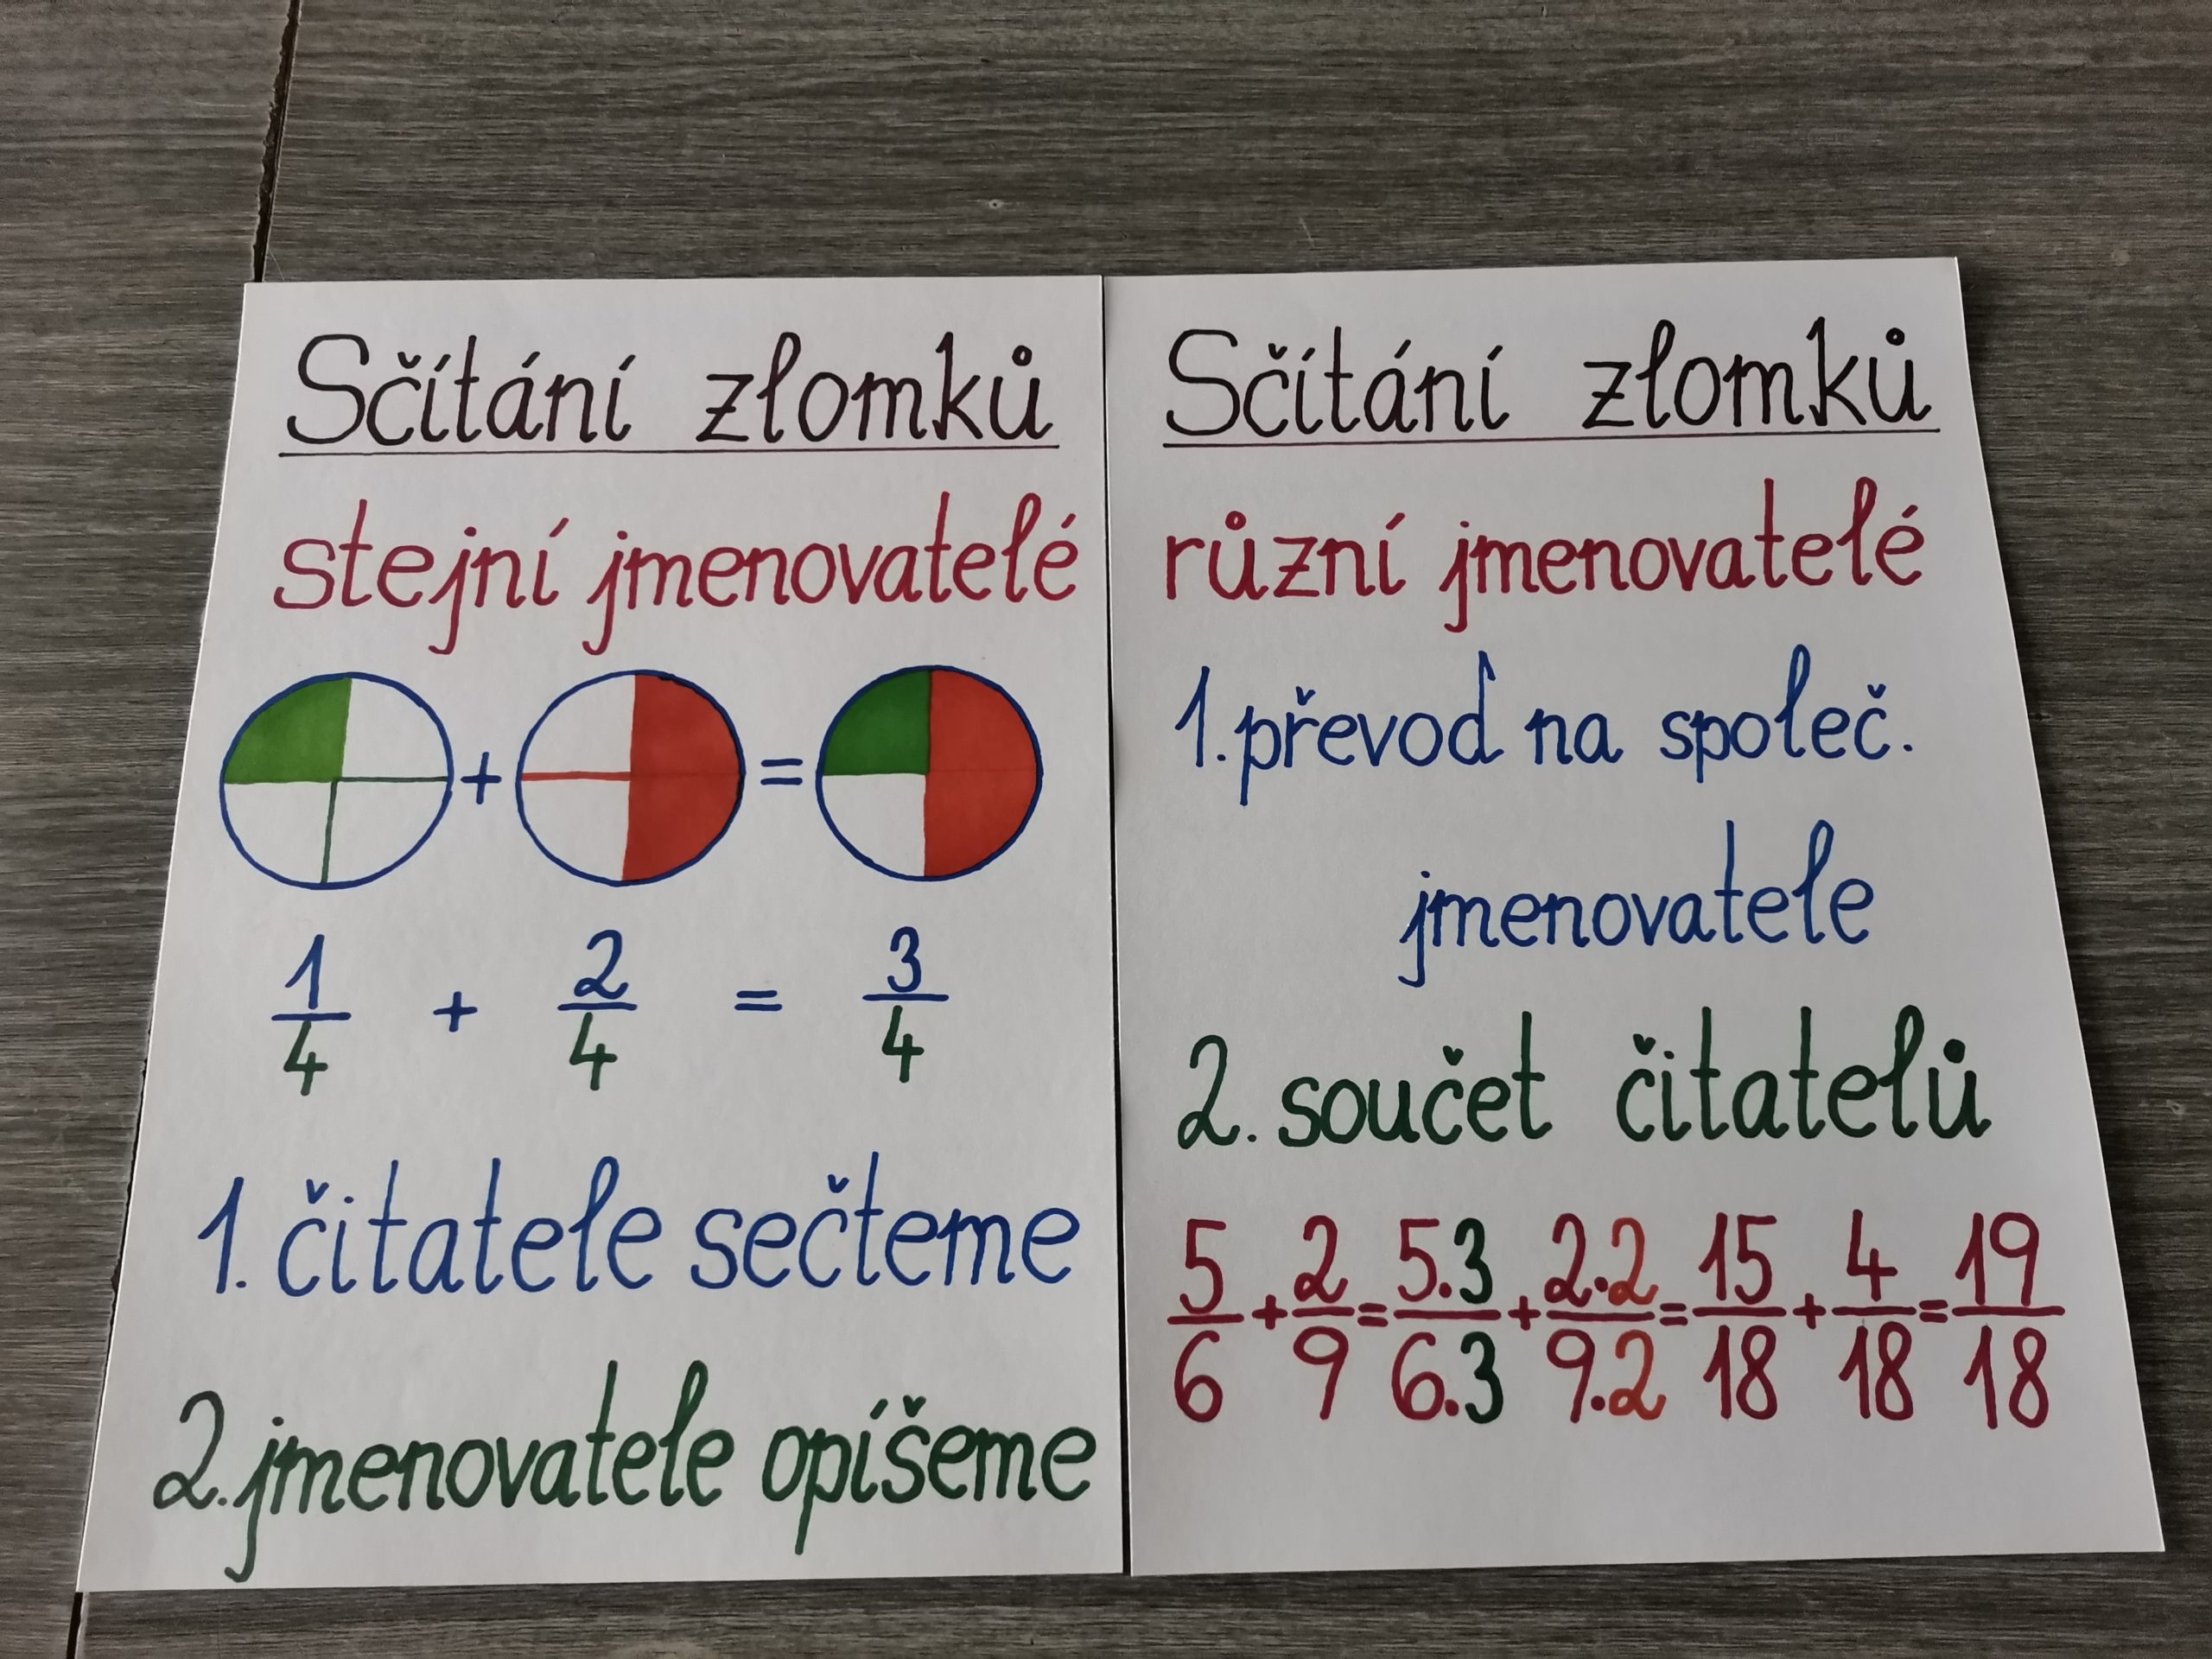 Sčítání zlomků
stejní jmenovatelé
+ =
1/4 + 2/4 = 3/4
1. čitatele sečteme
2. jmenovatele opíšeme
Sčítání zlomků
různí jmenovatelé
1. převod na společ.
jmenovatele
2. součet čitatelů
5/6 + 2/9 = 5.3/6.3 + 2·2/9.2 = 15/18 + 4/18 = 19/18